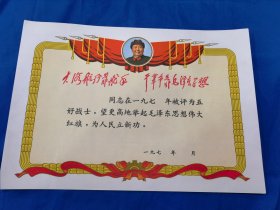 大海航行靠舵手 干革命靠毛泽东思想
同志在一九七 年被评为五
好战士，望更高地举起毛泽东思想伟大
红旗，为人民立新功。
一九七 年 月